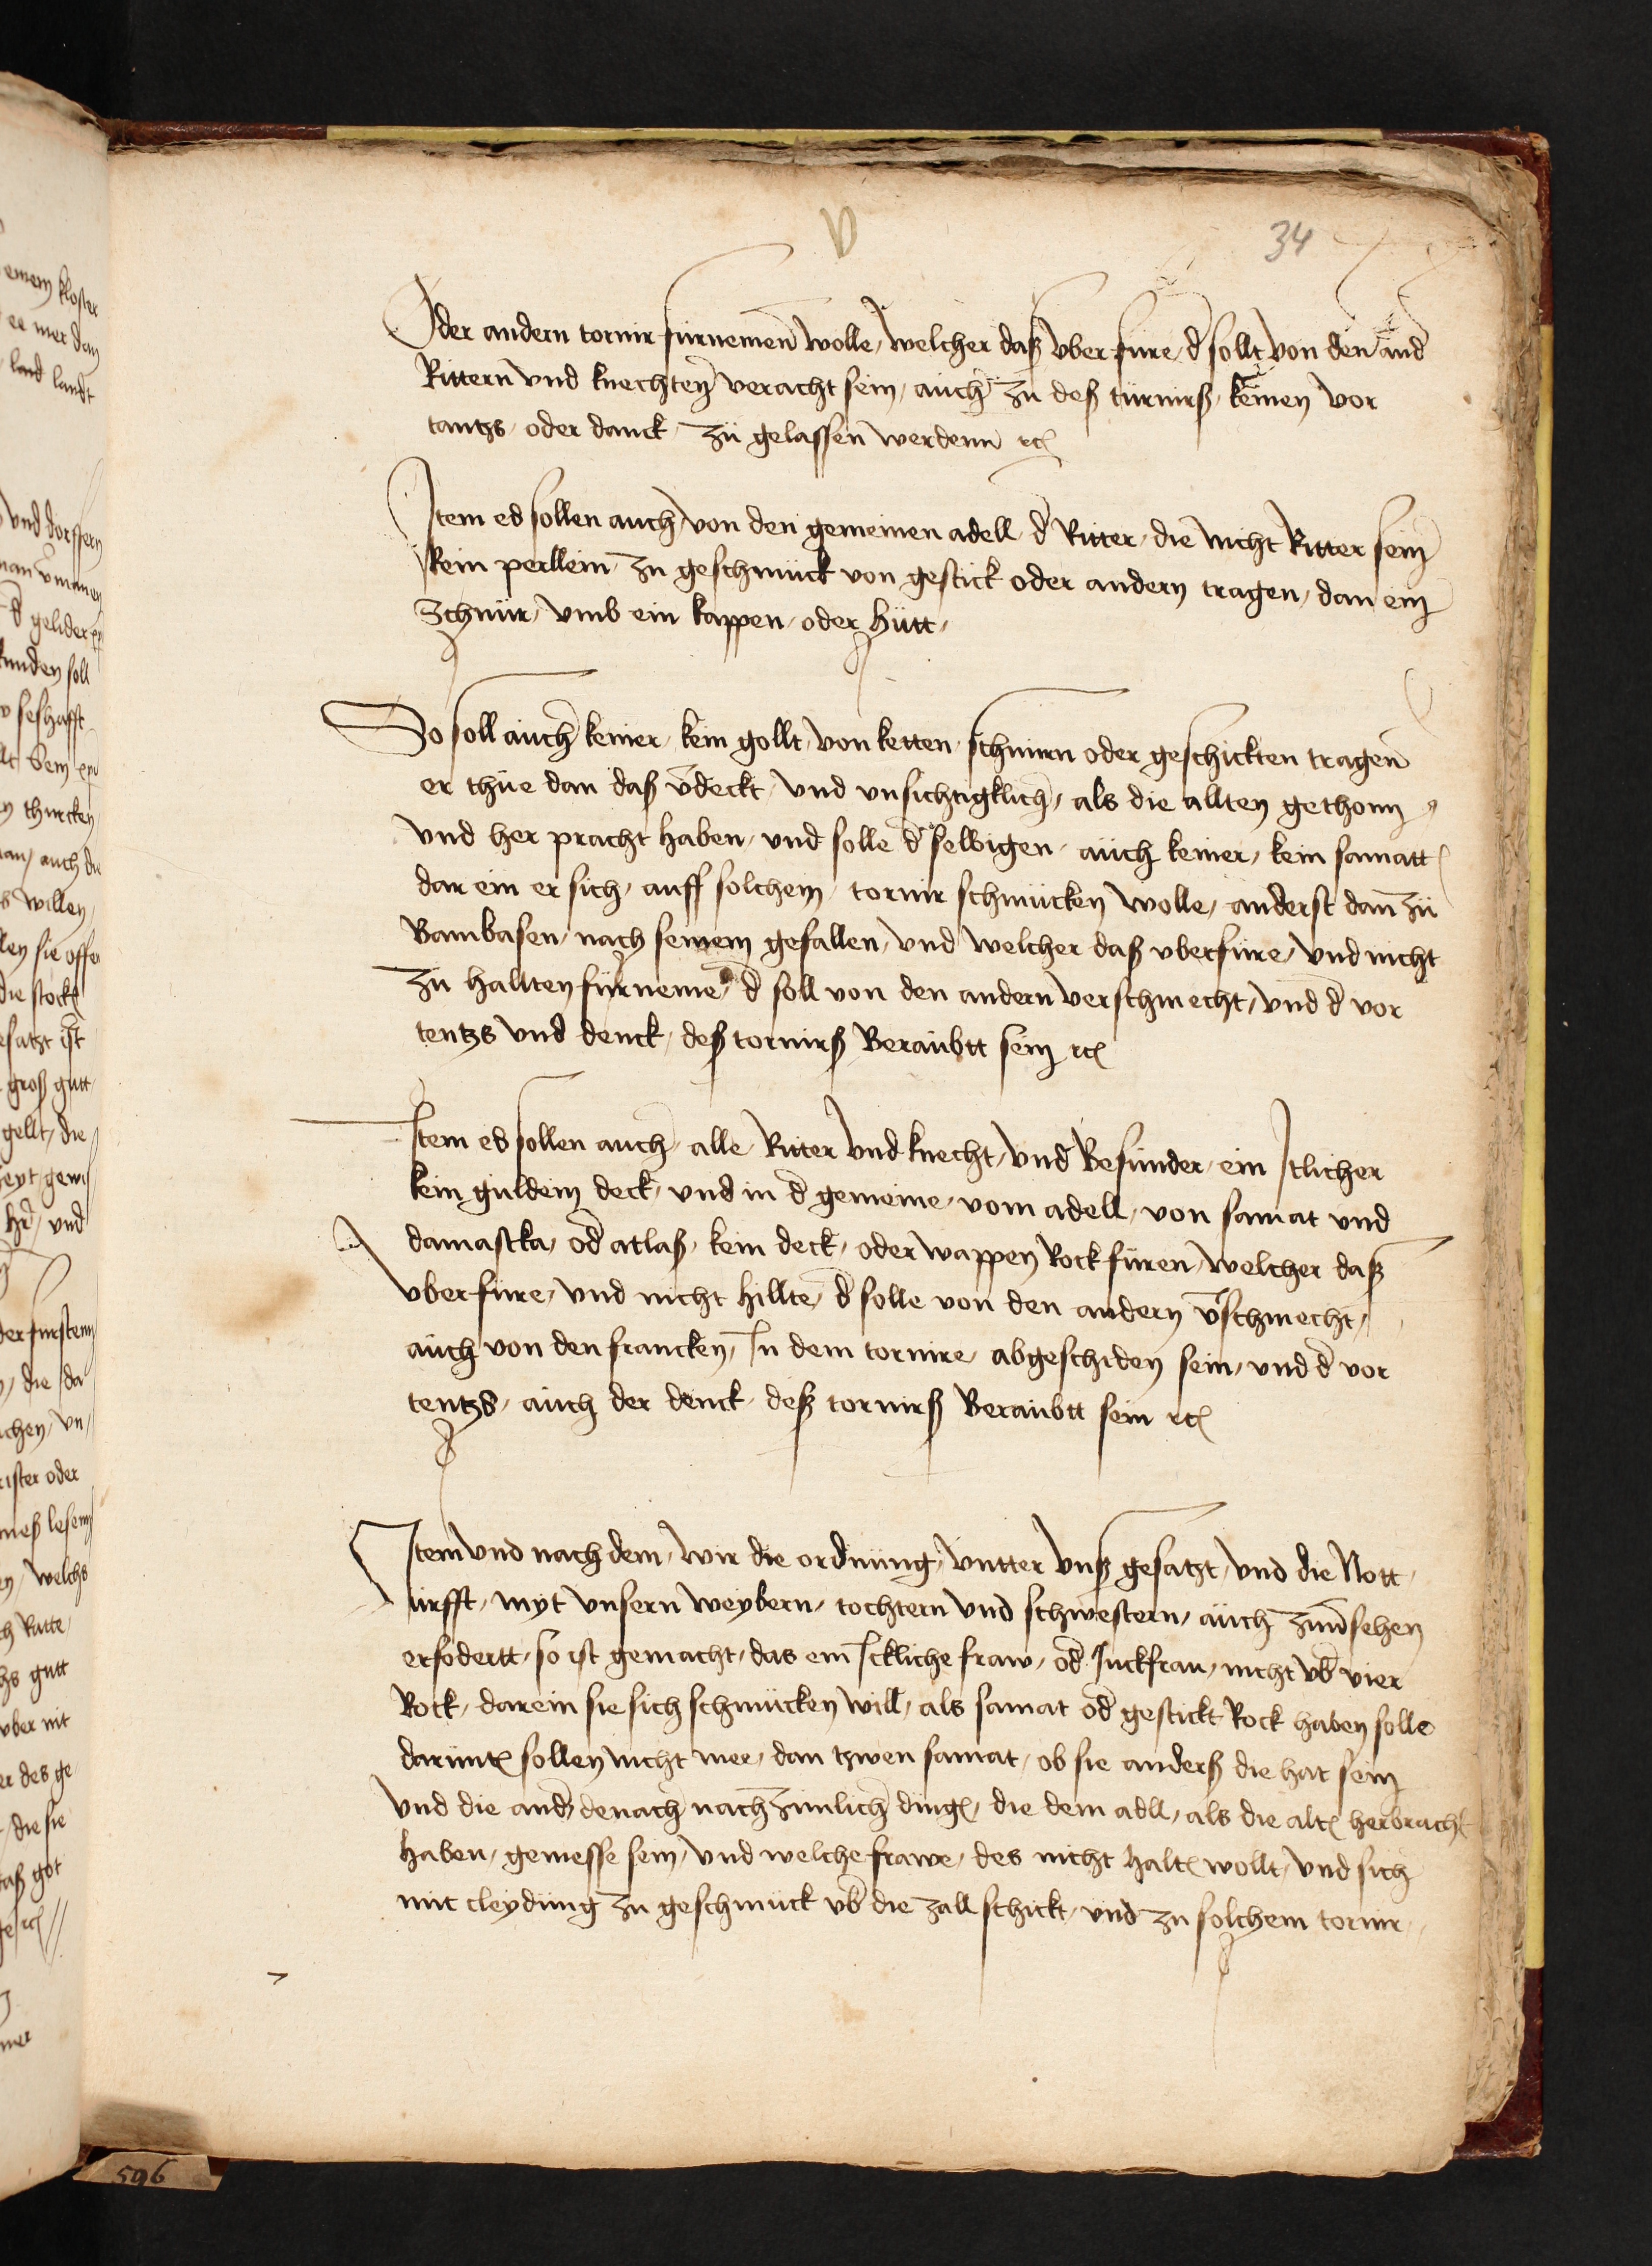 34
Oder andern tornir fürnemen wolle, welcher daß vber füre, d̄ sollt von den and̄
Rittern vnd knechten veracht sein, auch zu deß turnirß, keinen vor
tantzs, oder danck, zü gelassen werdenn ꝛc
Item es sollen auch, von den gemeinen adell, d̄ Ritter, die nicht Ritter sein
kein perllein zu geschmück von gestick oder andern tragen, dan ein
Schnür, vmb ein kappen, oder hütt,
So soll auch keiner, kein gollt, von ketten, schnürn oder geschickten tragen
er thüe dan daß v̄deckt, vnd vnsichtigklich, als die allten gethonn
vnd her pracht haben, vnd solle d̄ selbigen, auch keiner, kein samatt
dar ein er sich, auff solchem, tornir schmücken wolle, anderst dan zü
Bambasen, nach seinem gefallen, vnd welcher daß vberfüre, vnd nicht
zu hallten fürneme, d̄ soll von den andern verschmecht, vnd d̄ vor
tentzs vnd denck, deß tornirß Beraubtt sein ꝛc
Item es sollen auch, alle Ritter vnd knecht, vnd Besunder, ein Itlicher
kein guldein deck, vnd in d̄ gemeine, vom adell, von samat vnd
damascka, od̄ atlaß, kein deck, oder wappen Rock füren, welcher daß
vber füre, vnd nicht hillte, d̄ solle von den andern v̄schmecht,
auch von den francken, In dem tornire, abgeschiden sein, vnd d̄ vor
tentzs, auch der denck, deß tornirß Beraubtt sein ꝛc
Item vnd nach dem, wir die ordnüng, vntter vnß gesatzt, vnd die Nott,
ürfft, myt vnsern weybern, tochtern vnd schwestern, auch zuūsehen
erfodertt, so ist gemacht, das ein Ickliche fraw, od̄ Juckfrau, nicht vb̄ vier
Rock, darein sie sich schmücken will, als samat od̄ gestickt Rock haben solle
darünt̄ sollen nicht mer, dan tzwen samat, ob sie anderß die hat sein
vnd die and̄, denach nach zimlich ding, die dem adll, als die alt̄ herbracht
haben, gemesse sein, vnd welche frawe, des nicht halt̄ wollt, vnd sich
mit cleydüng zu geschmück vb̄ die zall schickt, vnd zu solchem tornir,
596